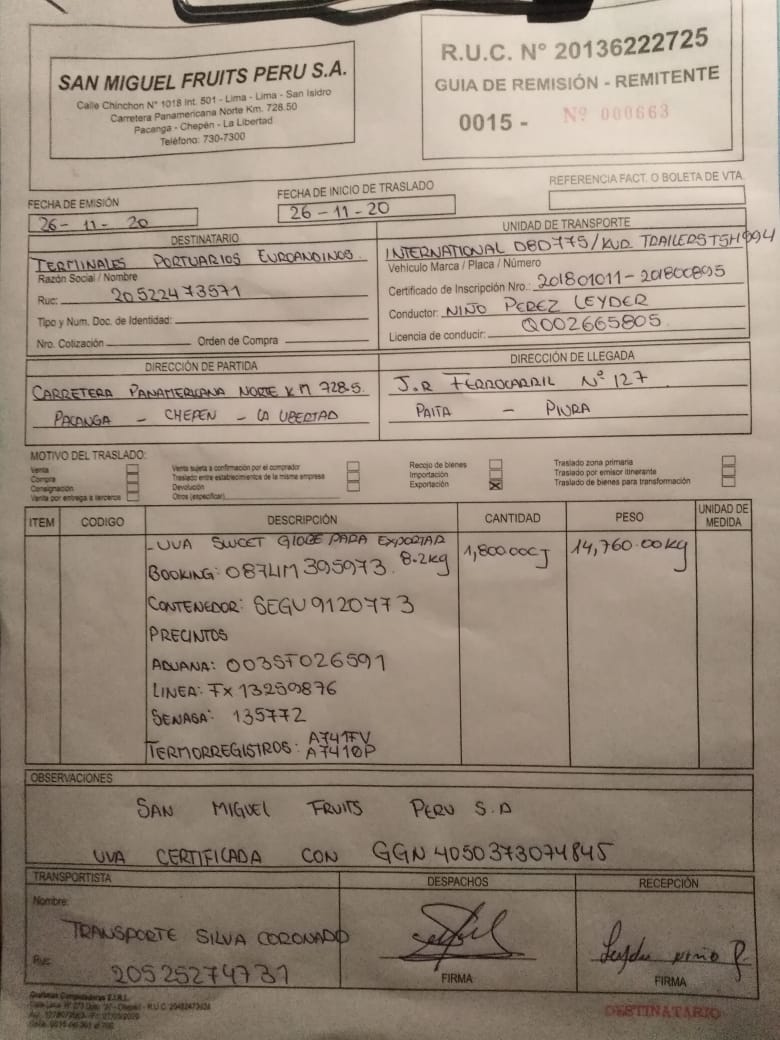 SAN MIGUEL FRUITS PERU S.A.
Calle Chinchon N° 1018 Int. 501 - Lima - Lima - San Isidro
Carretera Panamericana Norte Km. 728.50
Pacanga - Chepén - La Libertad
Teléfono: 730-7300
R.U.C. N° 20136222725
GUIA DE REMISIÓN - REMITENTE
0015 - Nº 000663
FECHA DE EMISIÓN
26-11-20
FECHA DE INICIO DE TRASLADO
26-11-20
REFERENCIA FACT. O BOLETA DE VTA.
DESTINATARIO
TERMINALES PORTUARIOS EUROANDINOS
Razón Social / Nombre
Ruc: 20522473571
Tipo y Num. Doc. de Identidad:
Nro. Cotización Orden de Compra
UNIDAD DE TRANSPORTE
INTERNATIONAL D8D775/KUD. TRAILERS T5H994
Vehículo Marca / Placa / Número
Certificado de Inscripción Nro.: 201801011-201800895
Conductor: NIÑO PEREZ LEYDER
Licencia de conducir: Q002665805
DIRECCIÓN DE PARTIDA
CARRETERA PANAMERICANA NORTE KM 728.5.
PACANGA - CHEPEN - LA LIBERTAD
DIRECCIÓN DE LLEGADA
J.R FERROCARRIL Nº 127
PAITA - PIURA
MOTIVO DEL TRASLADO:
Venta
Compra
Consignación
Venta por entrega a terceros
Venta sujeta a confirmación por el comprador
Traslado entre establecimientos de la misma empresa
Devolución
Otros (especificar)
Recojo de bienes
Importación
Exportación X
Traslado zona primaria
Traslado por emisor itinerante
Traslado de bienes para transformación
ITEM CODIGO DESCRIPCIÓN CANTIDAD PESO UNIDAD DE MEDIDA
- UVA SWEET GLOBE PARA EXPORTAR 8.2kg 1,800.00CJ 14,760.00kg
BOOKING: 087LIM395973
CONTENEDOR: SEGU9120773
PRECINTOS
ADUANA: 003ST026591
LINEA: FX13259876
SENASA: 135772
TERMORREGISTROS: A741FV
A7410P
OBSERVACIONES
SAN MIGUEL FRUITS PERU S.A
UVA CERTIFICADA CON GGN 4050373074845
TRANSPORTISTA
Nombre:
TRANSPORTE SILVA CORONADO
Ruc: 20525274731
DESPACHOS
FIRMA
RECEPCIÓN
Leyder niño P.
FIRMA
DESTINATARIO